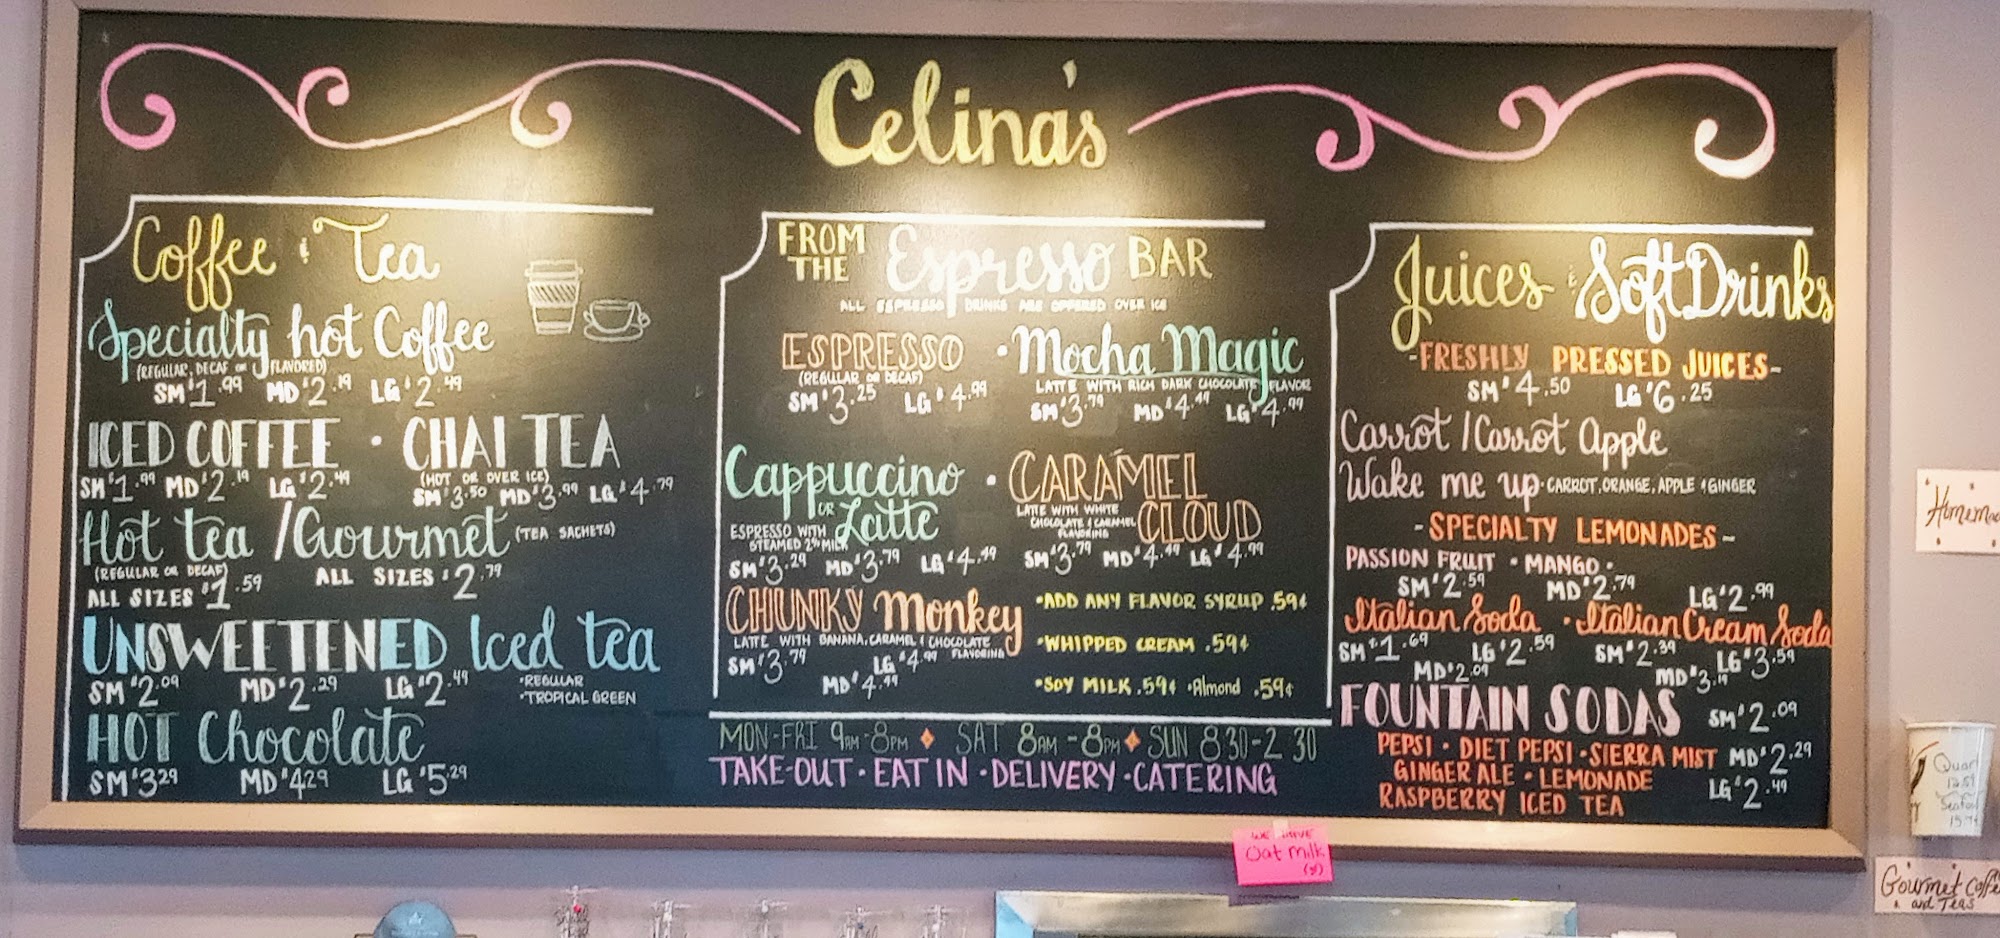 Celina's
Coffee & Tea
Specialty hot Coffee
(REGULAR, DECAF OR FLAVORED)
SM $1.99 MD $2.19 LG $2.49
ICED COFFEE • CHAI TEA
(HOT OR OVER ICE)
SM $1.99 MD $2.19 LG $2.49 SM $3.50 MD $3.99 LG $4.79
Hot tea / Gourmet (TEA SACHETS)
(REGULAR OR DECAF)
ALL SIZES $1.59 ALL SIZES $2.79
UNSWEETENED Iced tea
SM $2.09 MD $2.29 LG $2.49
•REGULAR
•TROPICAL GREEN
HOT Chocolate
SM $3.29 MD $4.29 LG $5.29
FROM THE Espresso BAR
ALL ESPRESSO DRINKS ARE OFFERED OVER ICE
ESPRESSO • Mocha Magic
(REGULAR OR DECAF) LATTE WITH RICH DARK CHOCOLATE FLAVOR
SM $3.25 LG $4.99 SM $3.79 MD $4.49 LG $4.99
Cappuccino • CARAMEL
OR Latte CLOUD
ESPRESSO WITH
STEAMED 2% MILK
LATTE WITH WHITE
CHOCOLATE & CARAMEL
FLAVORING
SM $3.29 MD $3.79 LG $4.49 SM $3.79 MD $4.49 LG $4.99
CHUNKY Monkey
LATTE WITH BANANA, CARAMEL & CHOCOLATE
FLAVORING
SM $3.79 LG $4.99
MD $4.49
•ADD ANY FLAVOR SYRUP .59¢
•WHIPPED CREAM .59¢
•SOY MILK .59¢ •Almond .59¢
MON-FRI 9AM-8PM SAT 8AM-8PM SUN 8:30-2:30
TAKE-OUT • EAT IN • DELIVERY • CATERING
Juices & Soft Drinks
-FRESHLY PRESSED JUICES-
SM $4.50 LG $6.25
Carrot / Carrot Apple
Wake me up - CARROT, ORANGE, APPLE & GINGER
-SPECIALTY LEMONADES-
PASSION FRUIT • MANGO •
SM $2.59 MD $2.79 LG $2.99
Italian Soda • Italian Cream Soda
SM $1.69 LG $2.59 SM $2.39 LG $3.59
MD $2.09 MD $3.19
FOUNTAIN SODAS SM $2.09
PEPSI • DIET PEPSI • SIERRA MIST MD $2.29
GINGER ALE • LEMONADE
RASPBERRY ICED TEA LG $2.49
WE HAVE
Oat Milk
Homemad
Quar
12.59
Seafoo
Gourmet Coffe
and Teas